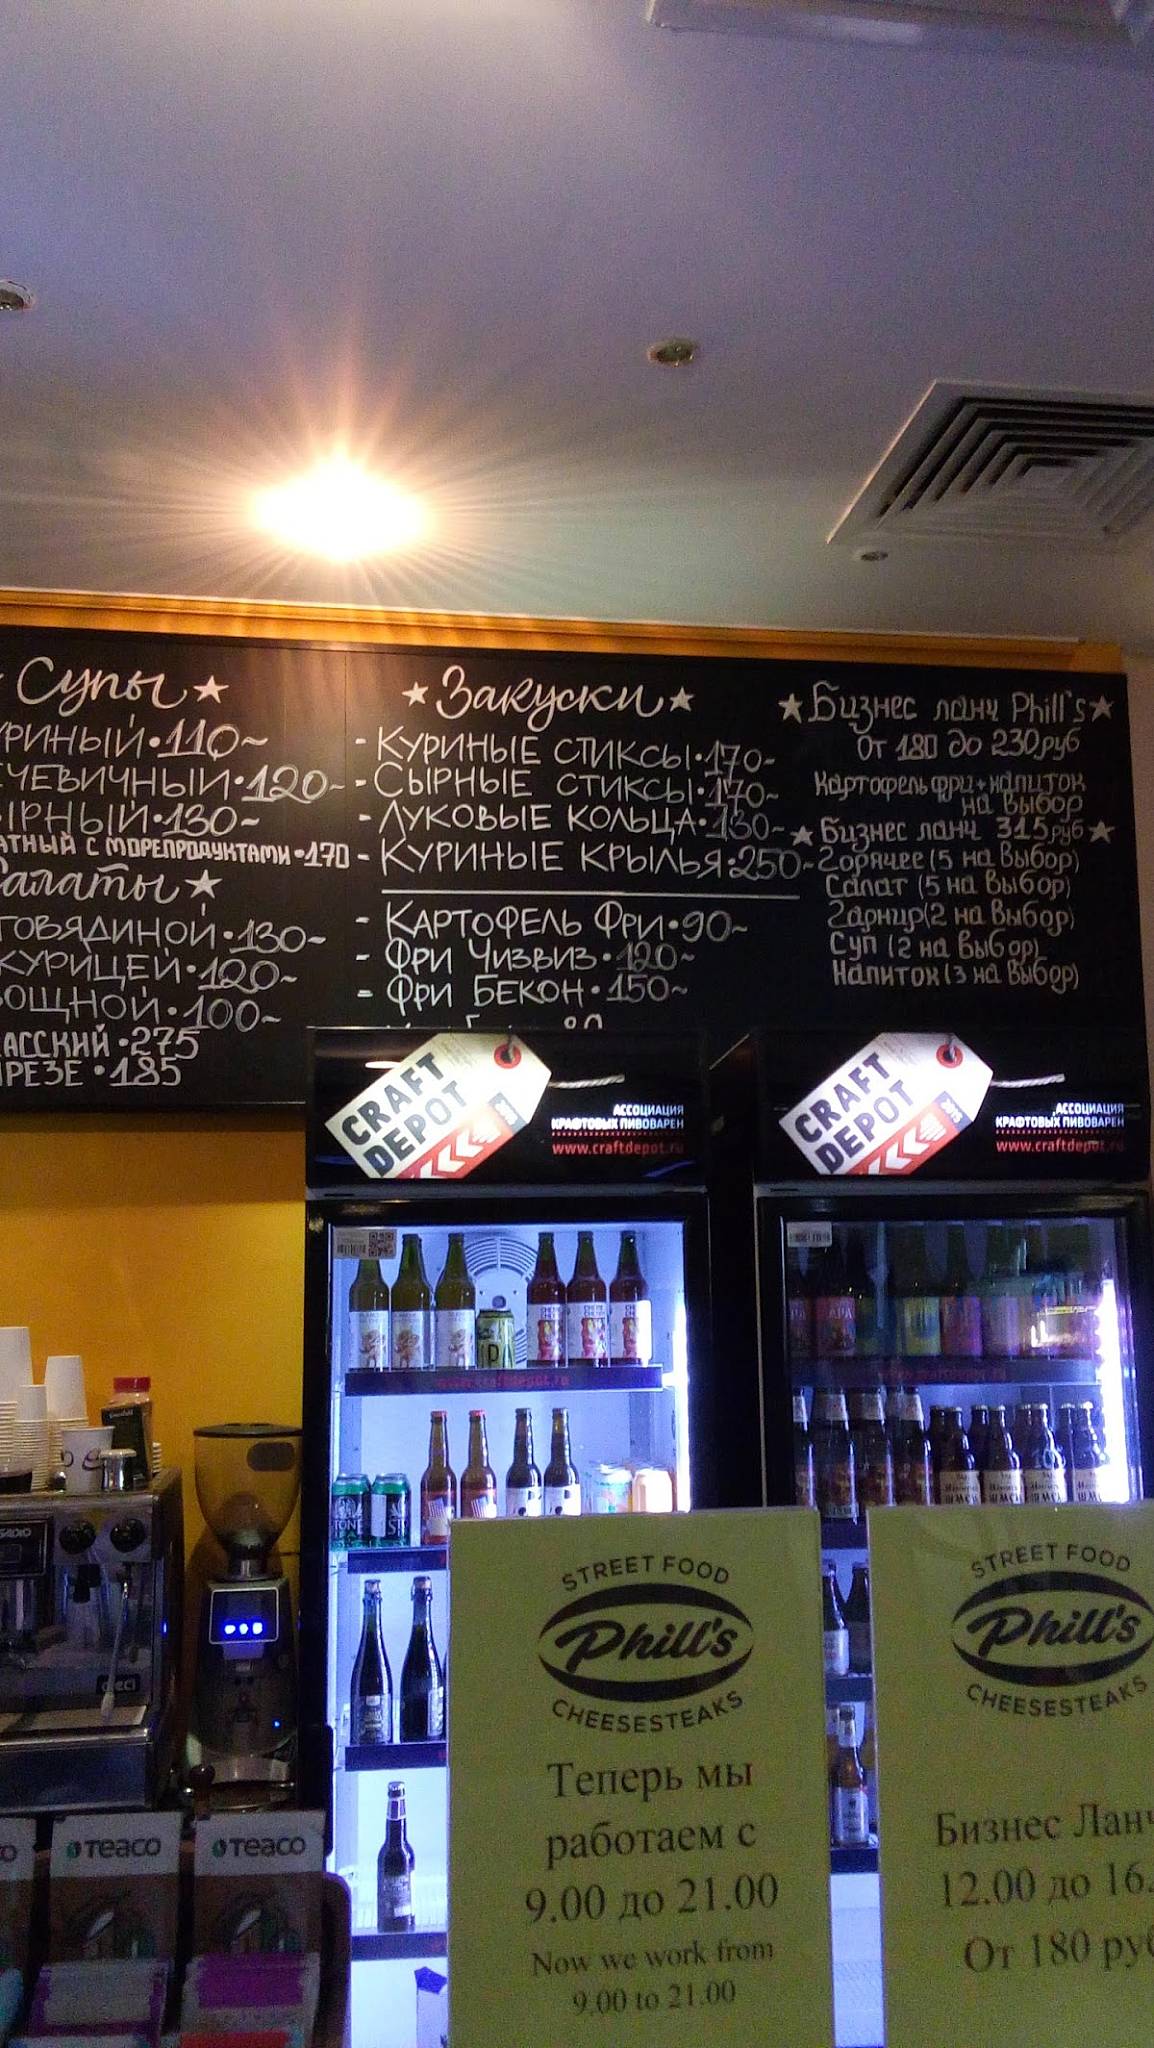 Супы
110
120
130
С МОРЕПРОДУКТАМИ 170
Салаты
ГОВЯДИНОЙ 130
КУРИЦЕЙ 120
100
275
185
Закуски
- КУРИНЫЕ СТИКСЫ 170
- СЫРНЫЕ СТИКСЫ 170
- ЛУКОВЫЕ КОЛЬЦА 130
- КУРИНЫЕ КРЫЛЬЯ 250
- КАРТОФЕЛЬ ФРИ 90
- ФРИ ЧИЗВИЗ 120
- ФРИ БЕКОН 150
Бизнес ланч Phill's
От 180 до 230 руб
Картофель фри + напиток
на выбор
Бизнес ланч 315 руб
Горячее (5 на выбор)
Салат (5 на выбор)
Гарнир (2 на выбор)
Суп (2 на выбор)
Напиток (3 на выбор)
CRAFT
DEPOT
АССОЦИАЦИЯ
КРАФТОВЫХ ПИВОВАРЕН
www.craftdepot.ru
CRAFT
DEPOT
АССОЦИАЦИЯ
КРАФТОВЫХ ПИВОВАРЕН
www.craftdepot.ru
www.craftdepot.ru
TEACO
TEACO
STREET FOOD
Phill's
CHEESESTEAKS
Теперь мы
работаем с
9.00 до 21.00
Now we work from
9.00 to 21.00
STREET FOOD
Phill's
CHEESESTEAKS
Бизнес
12.00 до
От 180